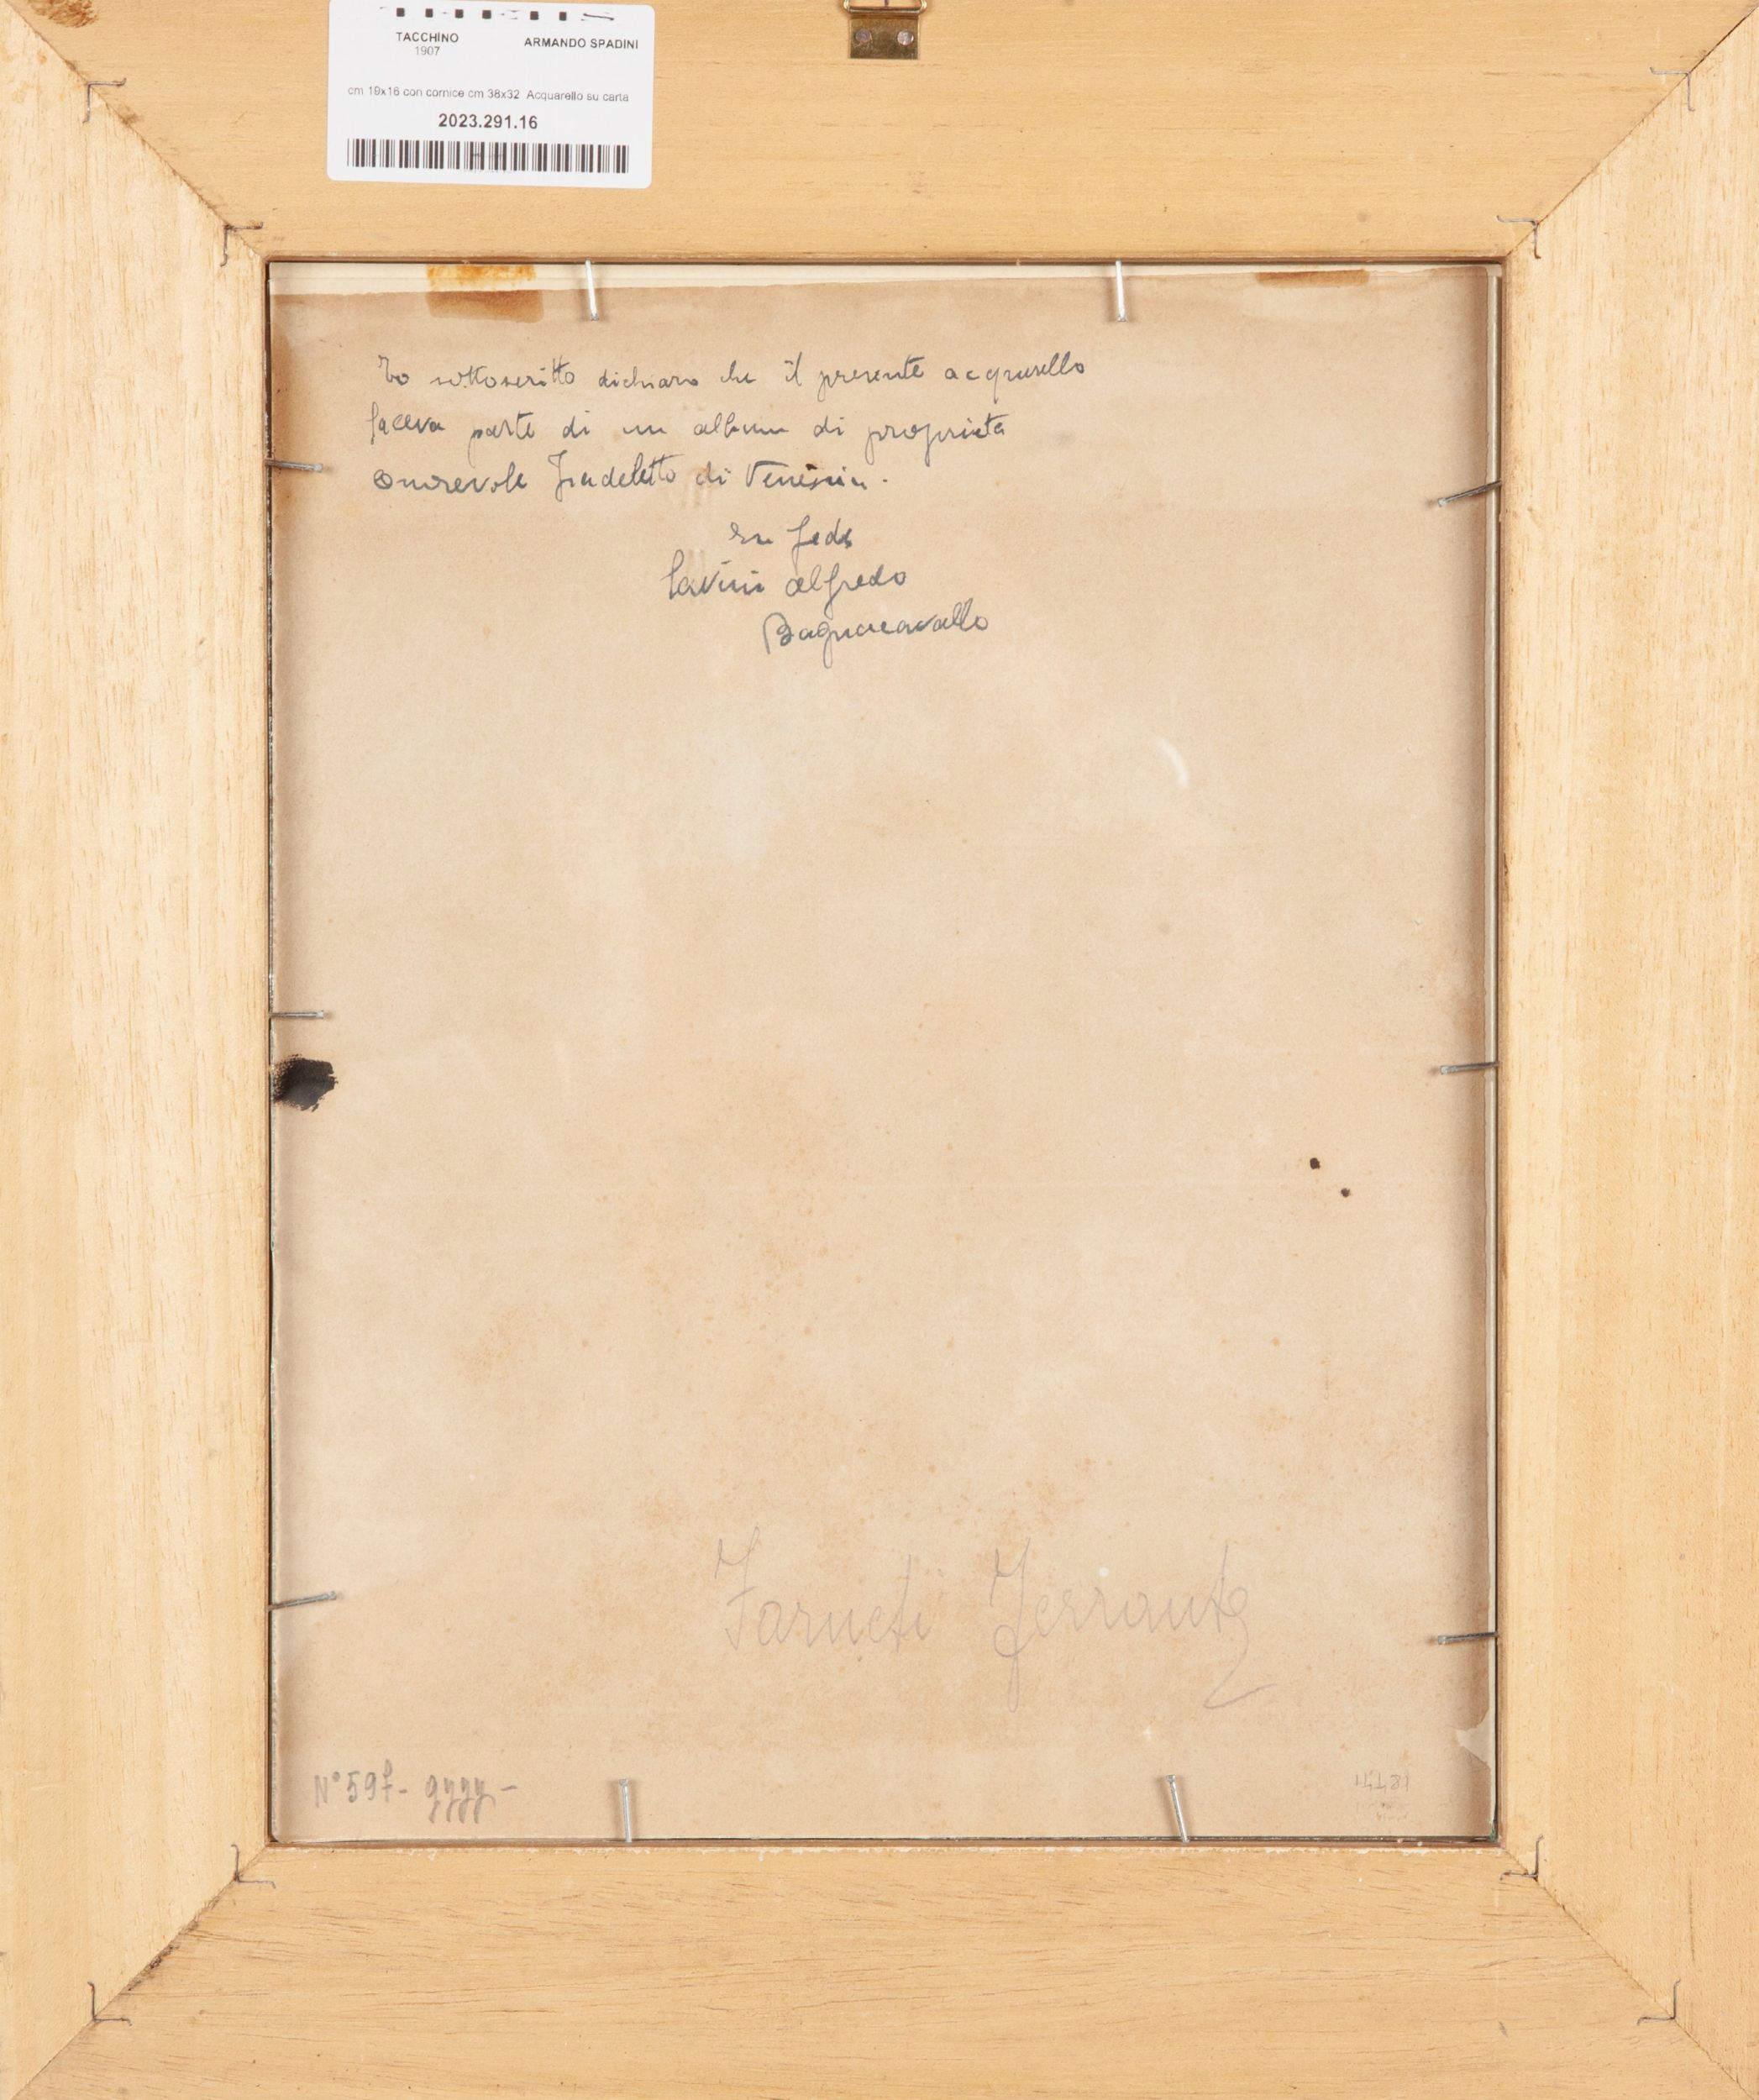 TACCHINO
1907
ARMANDO SPADINI
cm 19x16 con cornice cm 38x32 Acquarello su carta
2023.291.16
Io sottoscritto dichiaro che il presente acquarello
faceva parte di un album di proprietà
onorevole Fradeletto di Venezia.
In fede
Savini alfredo
Bagnacavallo
Farneti Ferrante
N° 597-